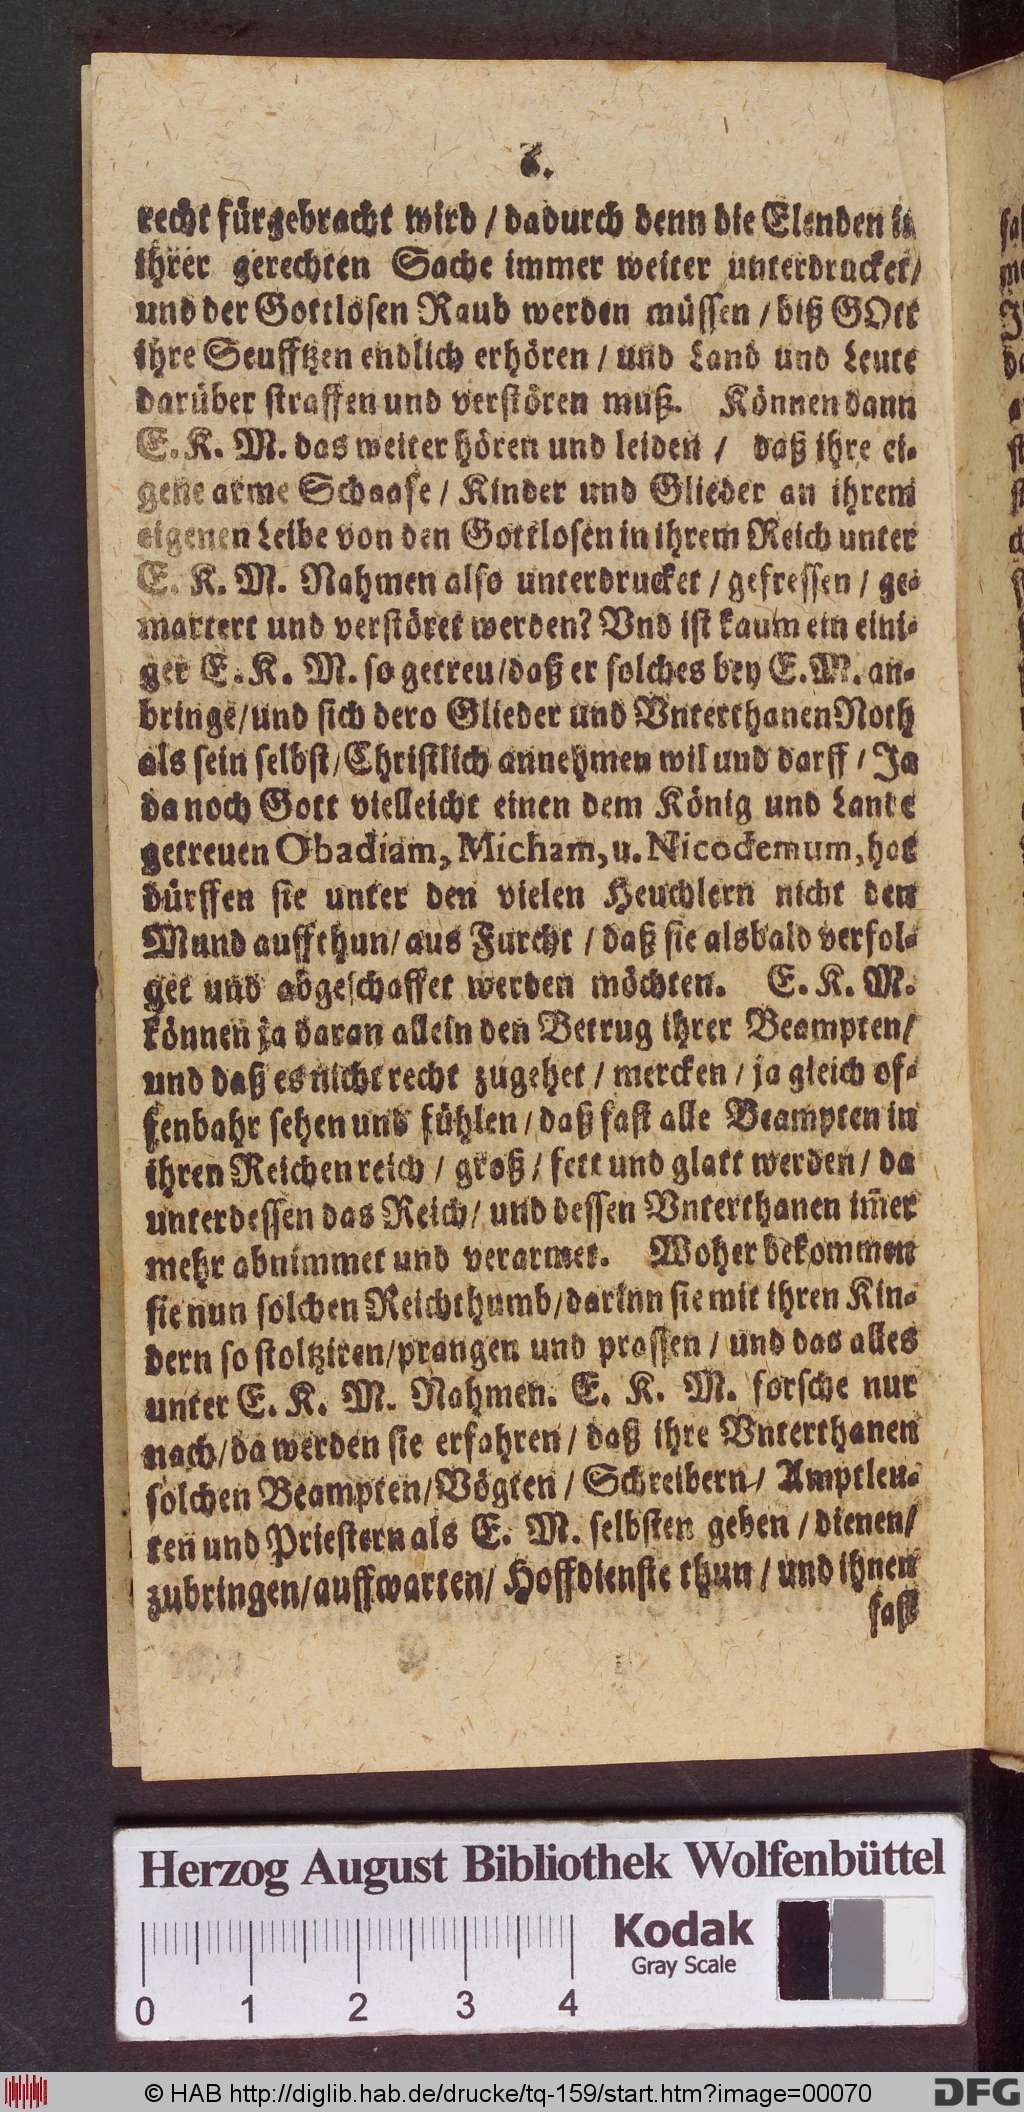 recht fürgebracht wird / dadurch denn die Elenden in
ihrer gerechten Sache immer weiter unterdrucket/
und der Gottlosen Raub werden müssen / biß GOtt
ihre Seufftzen endlich erhören / und Land und Leute
darüber straffen und verstören muß. Können dann
E. K. M. das weiter hören und leiden / daß ihre ei-
gene arme Schaafe / Kinder und Glieder an ihrem
eigenen Leibe von den Gottlosen in ihrem Reich unter
E. K. M. Nahmen also unterdrucket / gefressen / ge-
martert und verstöret werden? Vnd ist kaum ein eini-
ger E. K. M. so getreu/daß er solches bey E. M. an-
bringe/und sich dero Glieder und Vnterthanen Noth
als sein selbst/Christlich annehmen wil und darff / Ja
da noch Gott vielleicht einen dem König und Lande
getreuen Obadiam, Micham, u. Nicodemum, hat
dürffen sie unter den vielen Heuchlern nicht den
Mund auffthun/ aus Furcht / daß sie alsbald verfol-
get und abgeschaffet werden möchten. E. K. M.
können ja daran allein den Betrug ihrer Beampten/
und daß es nicht recht zugehet / mercken / ja gleich of-
fenbahr sehen und fühlen / daß fast alle Beampten in
ihren Reichen reich / groß / fett und glatt werden / da
unterdessen das Reich/ und dessen Vnterthanen im̃er
mehr abnimmet und verarmet. Woher bekommen
sie nun solchen Reichthumb/darinn sie mit ihren Kin-
dern so stoltziren/prangen und prassen / und das alles
unter E. K. M. Nahmen. E. K. M. forsche nur
nach/da werden sie erfahren / daß ihre Vnterthanen
solchen Beampten/Vögten / Schreibern/ Amptleu-
ten und Priestern als E. M. selbsten geben / dienen/
zubringen/auffwarten/ Hoffdienste thun / und ihnen
fast
Herzog August Bibliothek Wolfenbüttel
Kodak
Gray Scale
0 1 2 3 4
© HAB http://diglib.hab.de/drucke/tq-159/start.htm?image=00070
DFG